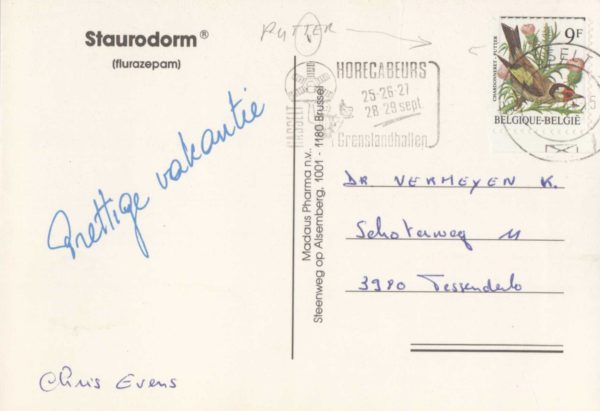 Staurodorm®
(flurazepam)
Prettige vakantie
Chris Evens
Madaus Pharma n.v.
Steenweg op Alsemberg, 1001 - 1180 Brussel
PUTTER
HASSELT
HORECABEURS
25-26-27
28-29 sept.
Grenslandhallen
9F
CHARDONNERET - PUTTER
BELGIQUE-BELGIË
DR VERMEYEN K.
Schoterweg 11
3980 Tessenderlo